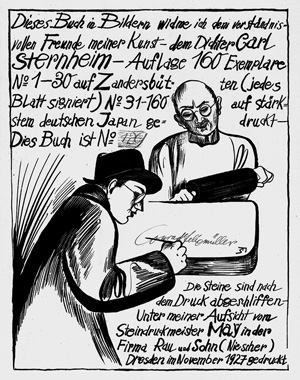 Dieses Buch in Bildern widme ich dem verständnis-
vollen Freunde meiner Kunst – dem Dichter Carl
Sternheim – Auflage 160 Exemplare
No 1–30 auf Zandersbüt- ten (jedes
Blatt signiert) No 31–160 auf stärk-
stem deutschen Japan ge- druckt –
Dies Buch ist No
Conrad Felixmüller
Die Steine sind nach
dem Druck abgeschliffen –
Unter meiner Aufsicht vom
Steindruckmeister May in der
Firma Rau und Sohn (Niescher)
Dresden im November 1927 gedruckt